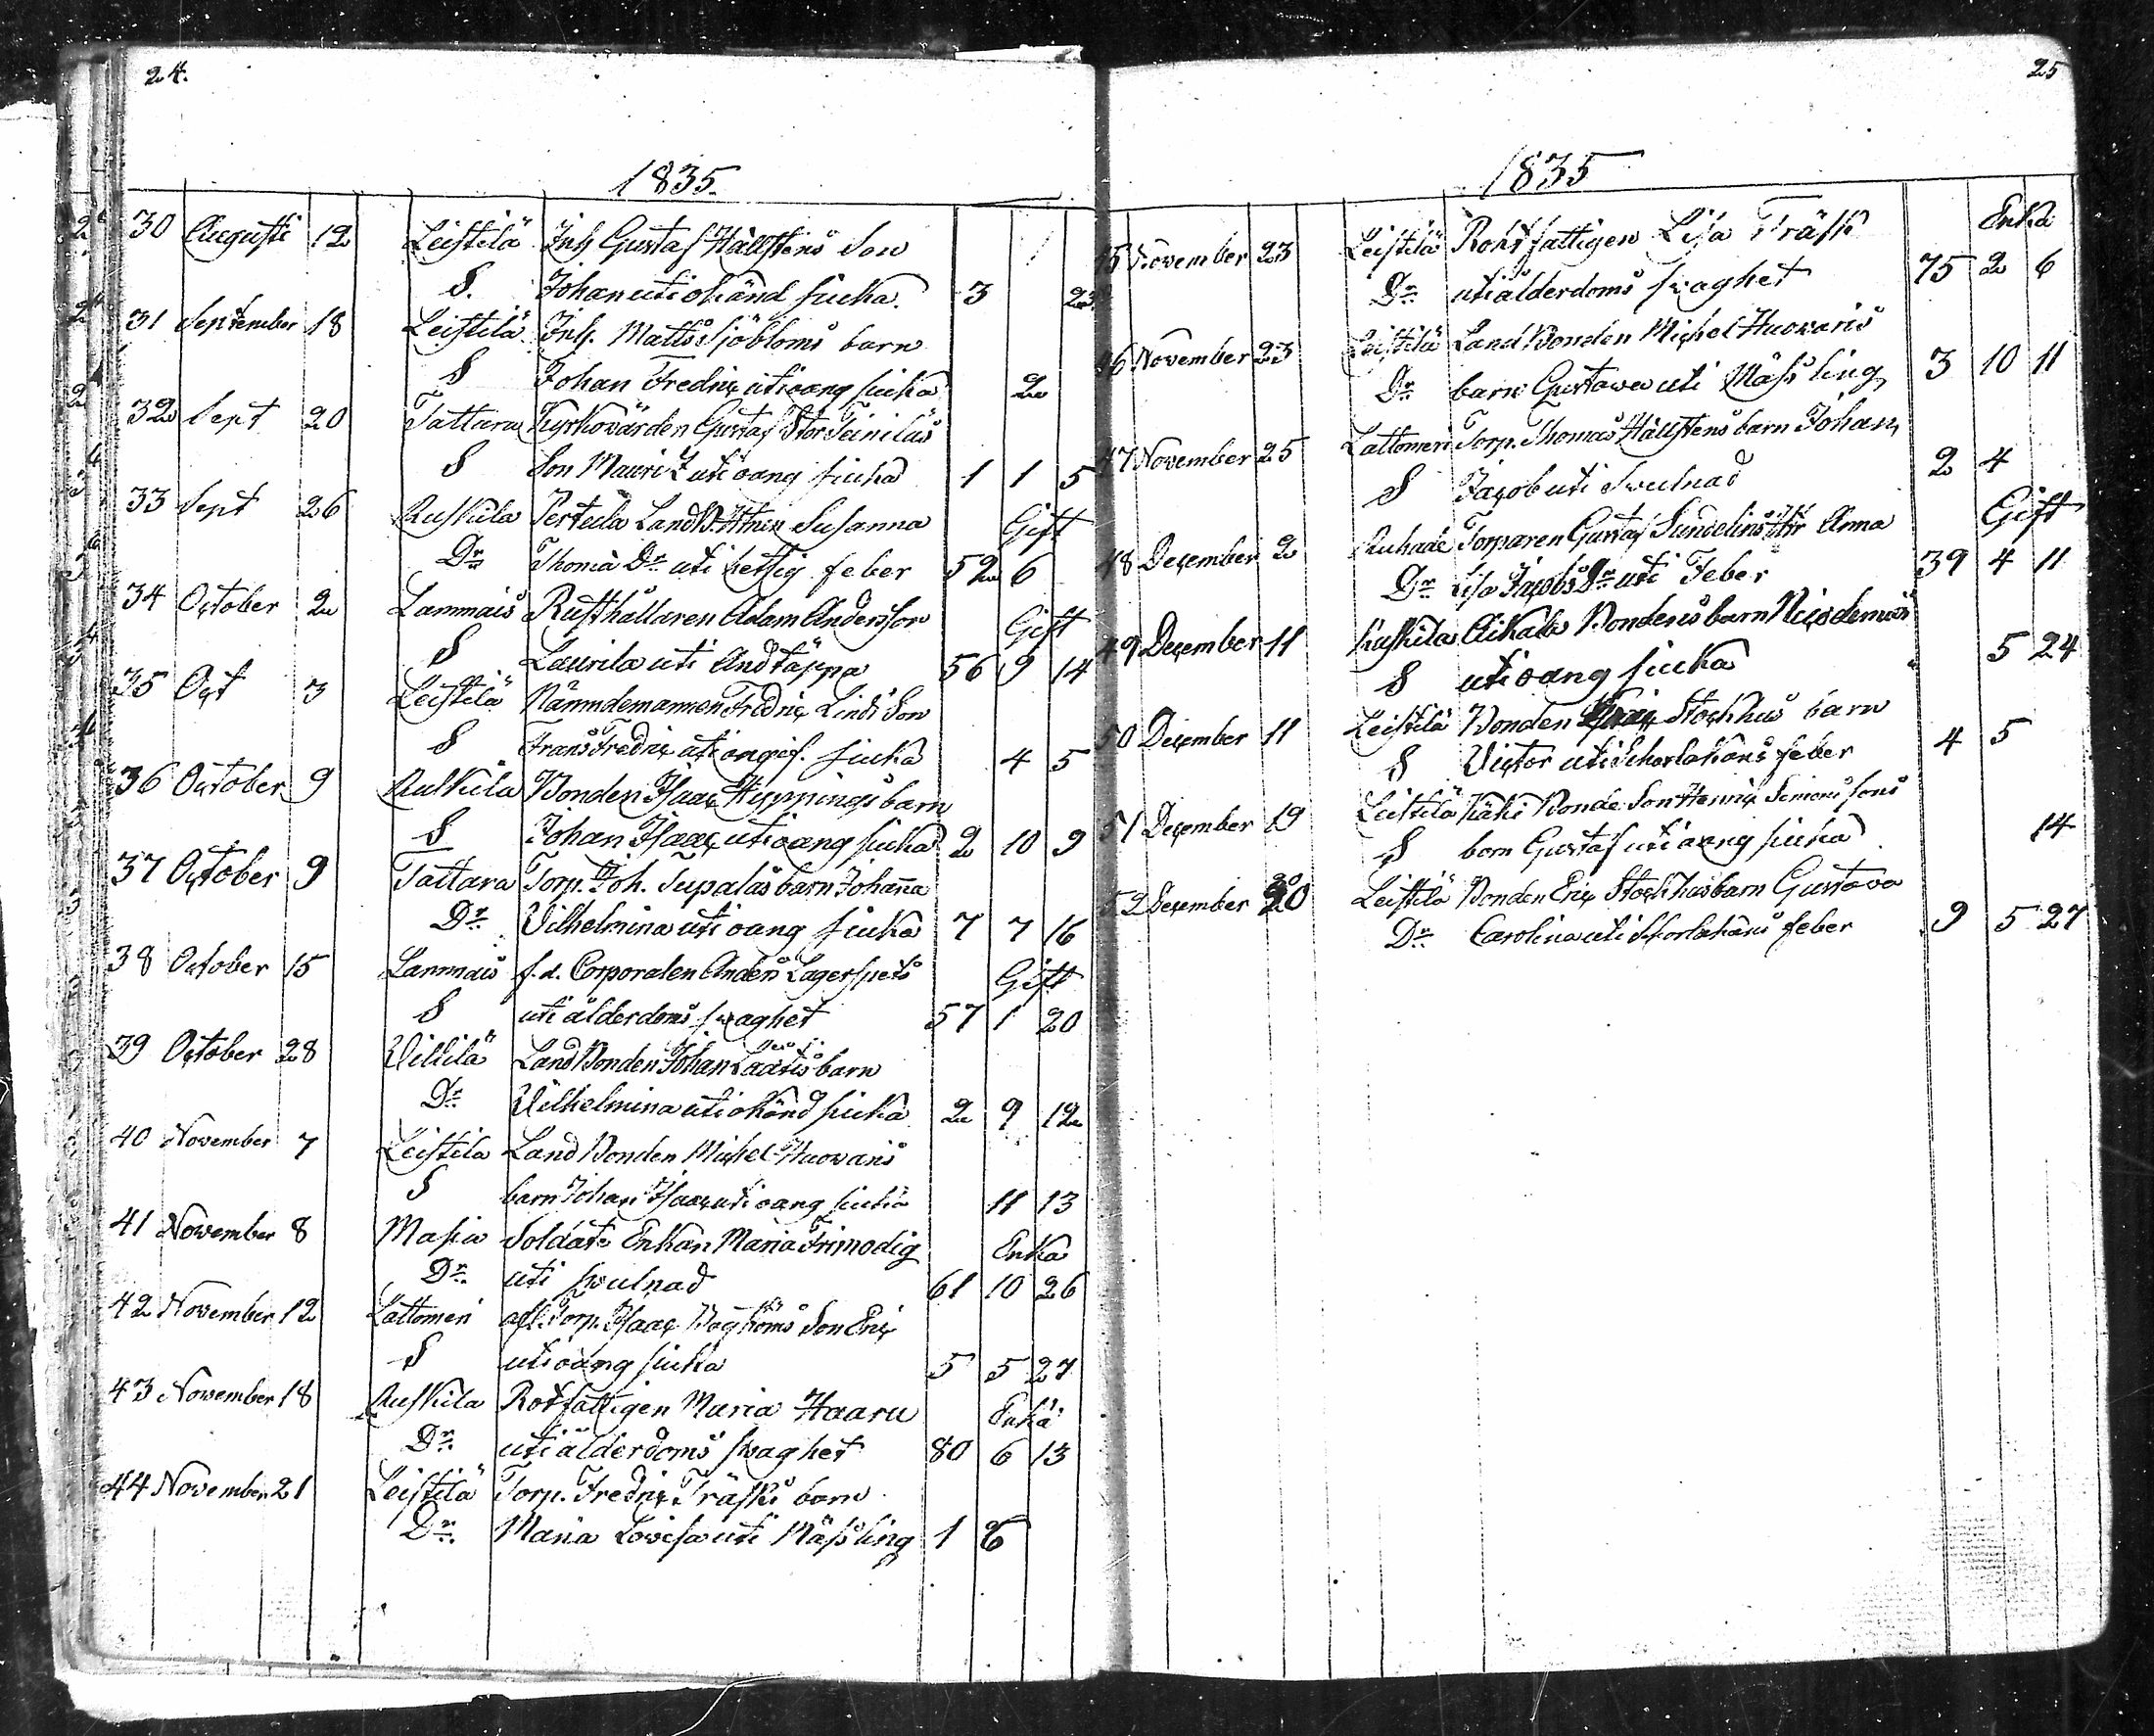 24.
1835.
30 Augusti 12 Leistilä Inh Gustaf Hällstens Son
S. Johan uti okänd siuka 3 23
31 September 18 Leistilä Inh. Matts Sjöbloms barn
S Johan Fredric uti oang siuka 2
32 Sept 20 Tattara Kyrkovärden Gustaf Stor Teiniläs
S Son Mauritz uti oang siuka 1 1 5
33 Sept 26 Ruskila Pertula LandB. Susanna Gift
Dr Thomæ Dr uti hettig feber 52 6
34 October 2 Lammais Rusthållaren Adam Andersson Gift
S Laurila uti Andtäppa 56 9 14
35 Oct 3 Leistilä Nämndemannen Fredric Linds Son
S Frans Fredric uti angif. siuka 4 5
36 October 9 Ruskila Bonden Isaac Hyppings barn
S Johan Isaac uti oang siuka 2 10 9
37 October 9 Tattara Torp. Joh. Tupalas barn Johanna
Dr Vilhelmina uti oang siuka 7 7 16
38 October 15 Lammais f.d. Corporalen Anders Lagerspets Gift
S uti ålderdoms swaghet 57 1 20
39 October 28 Villilä Land Bonden Johan Laatis barn
Dr Vilhelmina uti okänd siuka 2 9 12
40 November 7 Leistilä Land Bonden Michel Huovaris
S barn Johan Isaac uti oang siuka 11 13
41 November 8 Masia Soldats Enkan Maria Frimodig Enka
Dr uti swulnad 61 10 26
42 November 12 Lattomeri afl. Torp. Isaac Son Eric
S uti oang siuka 5 5 27
43 November 18 Ruskila Rotfattigen Maria Haaru Enka
Dr uti ålderdoms swaghet 80 6 13
44 November 21 Leistilä Torp. Fredric Träsks barn
Dr Maria Lovisa uti Mässling 1 6
25
1835
45 November 23 Leistilä Rotsfattigen Lisa Träsk Enka
Dr uti ålderdoms swaghet 75 2 6
46 November 23 Leistilä Land Bonden Michel Huovaris
Dr barn Gustava uti Mässling 3 10 11
47 November 25 Lattomeri Torp. Thomas Hällstens barn Johan
S Jacob uti Swulnad 2 4
48 December 2 Torparen Gustaf Sundelins Anna Gift
Dr Lisa Jacobs Dr uti Feber 39 4 11
49 December 11 Ruskila Aikala Bondens barn Nicodemus
S uti oang siuka 5 24
50 December 11 Leistilä Bonden Stockhus barn
S Victor uti Scharlakans feber 4 5
51 December 19 Leistilä Käki Bonde Son Henric Simons sons
S barn Gustaf uti oang siuka 14
52 December 20 Leistilä Bonden Eric Stockhus barn Gustava
Dr Carolina uti Skarlakans feber 9 5 27